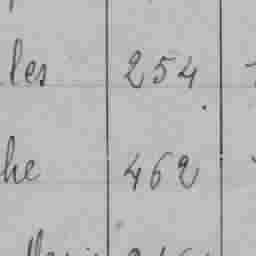 les 254.
he 462